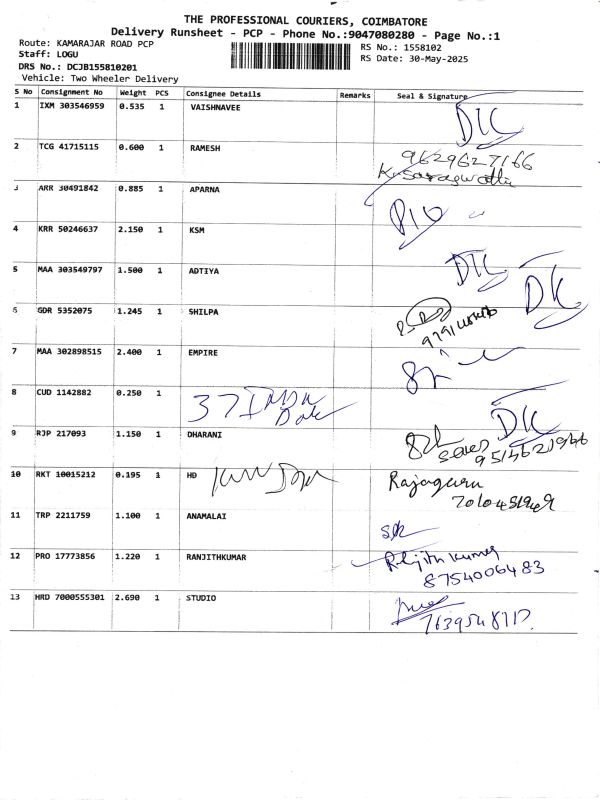 THE PROFESSIONAL COURIERS, COIMBATORE
Delivery Runsheet - PCP - Phone No.:9047080280 - Page No.:1
Route: KAMARAJAR ROAD PCP
Staff: LOGU
DRS No.: DCJB155810201
Vehicle: Two Wheeler Delivery
RS No.: 1558102
RS Date: 30-May-2025
S No Consignment No Weight PCS Consignee Details Remarks Seal & Signature
1 IXM 303546959 0.535 1 VAISHNAVEE
2 TCG 41715115 0.600 1 RAMESH 9629627166
3 ARR 30491842 0.885 1 APARNA
4 KRR 50246637 2.150 1 KSM
5 MAA 303549797 1.500 1 ADTIYA
6 GDR 5352075 1.245 1 SHILPA
7 MAA 302898515 2.400 1 EMPIRE
8 CUD 1142882 0.250 1
9 RJP 217093 1.150 1 DHARANI
10 RKT 10015212 0.195 1 HD
11 TRP 2211759 1.100 1 ANAMALAI
12 PRO 17773856 1.220 1 RANJITHKUMAR
8754006483
13 HRD 7000555301 2.690 1 STUDIO